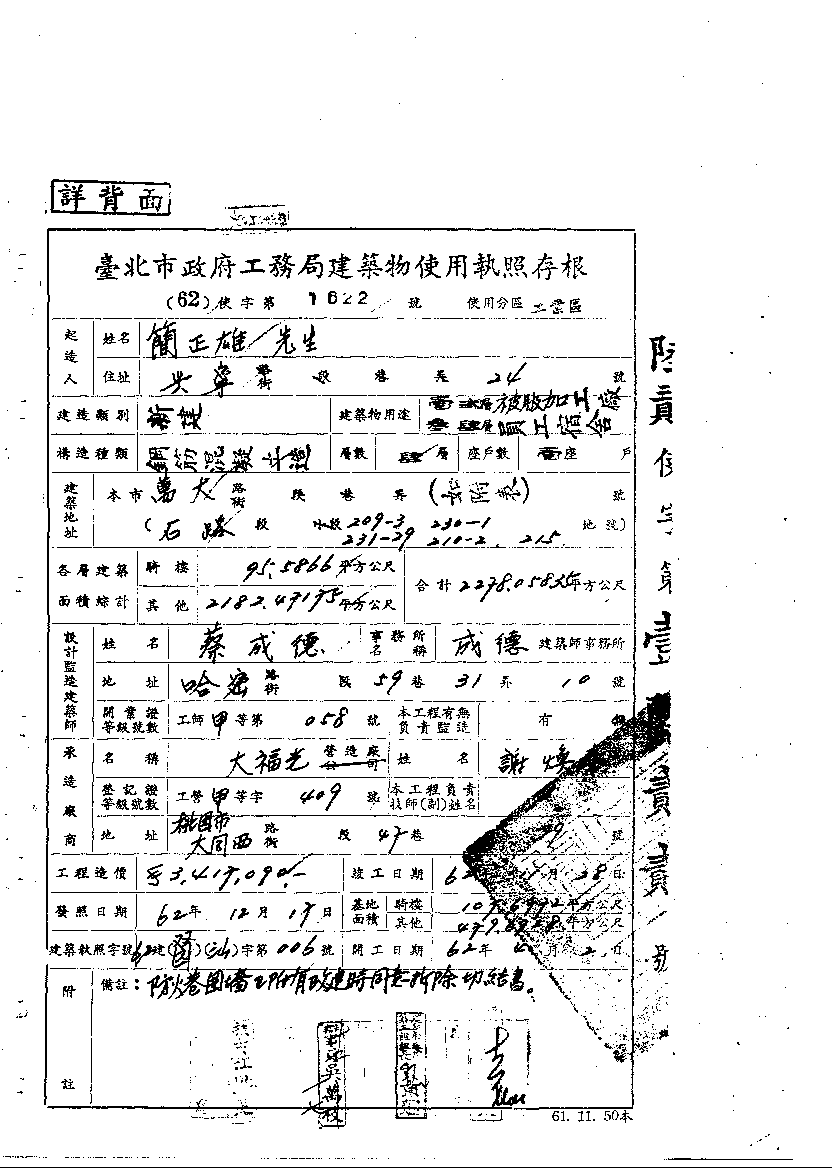 詳背面
臺北市政府工務局建築物使用執照存根
(62)使字第 1622 號 使用分區 工業區
起造人 姓名 簡正雄 先生
住址 街 段 巷 弄 24 號
建造類別 新建 建築物用途 層被服加工廠
層員工宿舍
構造種類 鋼筋混凝土造 層數 肆層 座戶數 壹座 戶
建築地址 本市 萬大 路街 段 巷 弄 號
(石路 段 小段 209-3 230-1 地號)
231-29 210-2 215
各層建築面積綜計 騎樓 95.5866 平方公尺
其他 2182.47175 平方公尺 合計 2278.05835 平方公尺
設計監造建築師 姓名 蔡成德 事務所名稱 成德 建築師事務所
地址 哈密 路街 段 59 巷 31 弄 10 號
開業證等級號數 工師 甲 等第 058 號 本工程有無負責監造 有
承造廠商 名稱 大福光 營造廠公司 姓名 謝煥
登記證等級號數 工營 甲 等字 409 號 本工程負責技師(副)姓名
地址 桃園市大同西 路街 段 47 巷 號
工程造價 3,417,090.- 竣工日期 62 月 28 日
發照日期 62 年 12 月 17 日 基地面積 騎樓 平方公尺
其他 平方公尺
建築執照字號 62 建 字第 006 號 開工日期 62 年 4 月 2 日
附註 備註:防火巷圍牆如有改建時同意拆除切結書。
61. 11. 50本
使字第壹
號